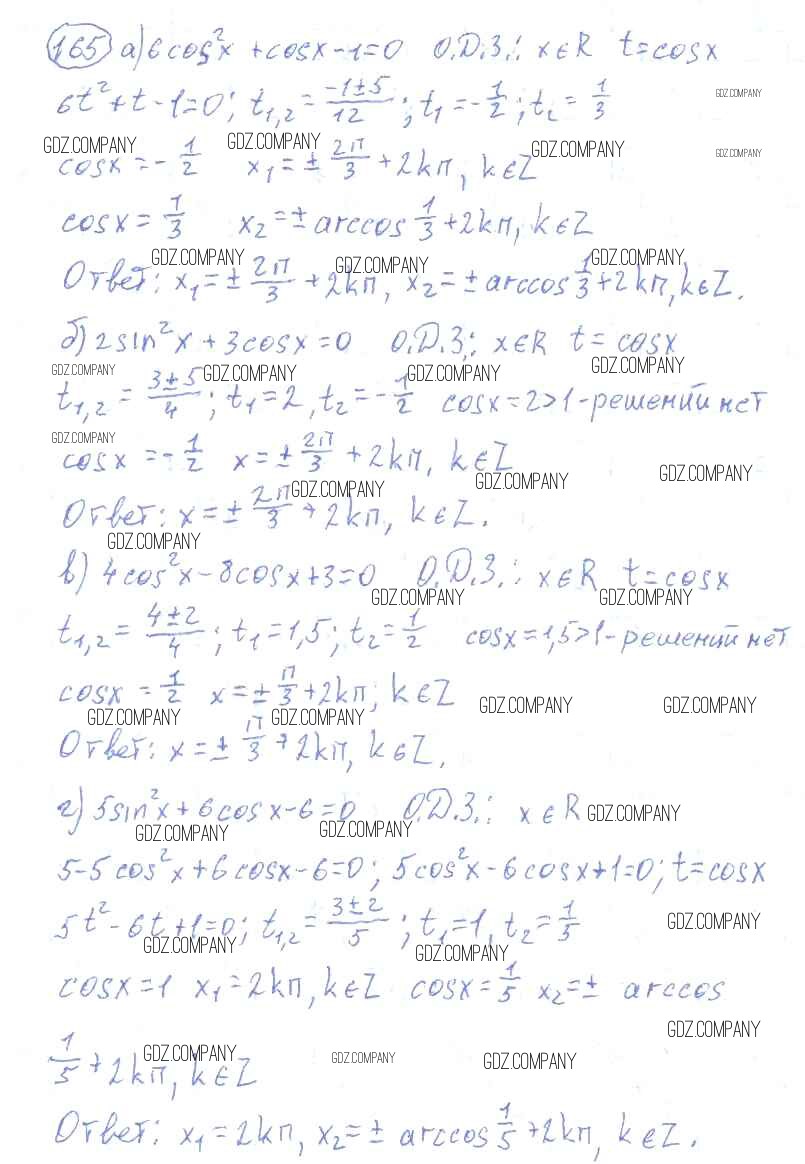 165 а) 6cos²x + cosx - 1 = 0 О.Д.З.: x∈R t=cosx
6t²+t-1=0; t₁,₂ = (-1±5)/12; t₁=-1/2; t₂=1/3
GDZ.COMPANY
GDZ.COMPANY GDZ.COMPANY GDZ.COMPANY GDZ.COMPANY
cosx=-1/2 x₁=±2π/3+2kπ, k∈Z
cosx=1/3 x₂=±arccos 1/3+2kπ, k∈Z
GDZ.COMPANY GDZ.COMPANY GDZ.COMPANY
Ответ: x₁=±2π/3+2kπ, x₂=±arccos 1/3+2kπ, k∈Z.
б) 2sin²x+3cosx=0 О.Д.З.: x∈R t=cosx
GDZ.COMPANY GDZ.COMPANY GDZ.COMPANY GDZ.COMPANY
t₁,₂=(3±5)/4; t₁=2, t₂=-1/2 cosx=2>1-решений нет
GDZ.COMPANY
cosx=-1/2 x=±2π/3+2kπ, k∈Z
GDZ.COMPANY GDZ.COMPANY GDZ.COMPANY
Ответ: x=±2π/3+2kπ, k∈Z.
GDZ.COMPANY
в) 4cos²x-8cosx+3=0 О.Д.З.: x∈R t=cosx
GDZ.COMPANY GDZ.COMPANY
t₁,₂=(4±2)/4; t₁=1,5; t₂=1/2 cosx=1,5>1-решений нет
cosx=1/2 x=±π/3+2kπ, k∈Z
GDZ.COMPANY GDZ.COMPANY GDZ.COMPANY GDZ.COMPANY
Ответ: x=±π/3+2kπ, k∈Z.
г) 5sin²x+6cosx-6=0 О.Д.З.: x∈R GDZ.COMPANY
GDZ.COMPANY GDZ.COMPANY
5-5cos²x+6cosx-6=0; 5cos²x-6cosx+1=0; t=cosx
5t²-6t+1=0; t₁,₂=(3±2)/5; t₁=1, t₂=1/5 GDZ.COMPANY
GDZ.COMPANY GDZ.COMPANY
cosx=1 x₁=2kπ, k∈Z cosx=1/5 x₂=± arccos
GDZ.COMPANY
1/5+2kπ, k∈Z
GDZ.COMPANY GDZ.COMPANY GDZ.COMPANY
Ответ: x₁=2kπ, x₂=± arccos 1/5+2kπ, k∈Z.